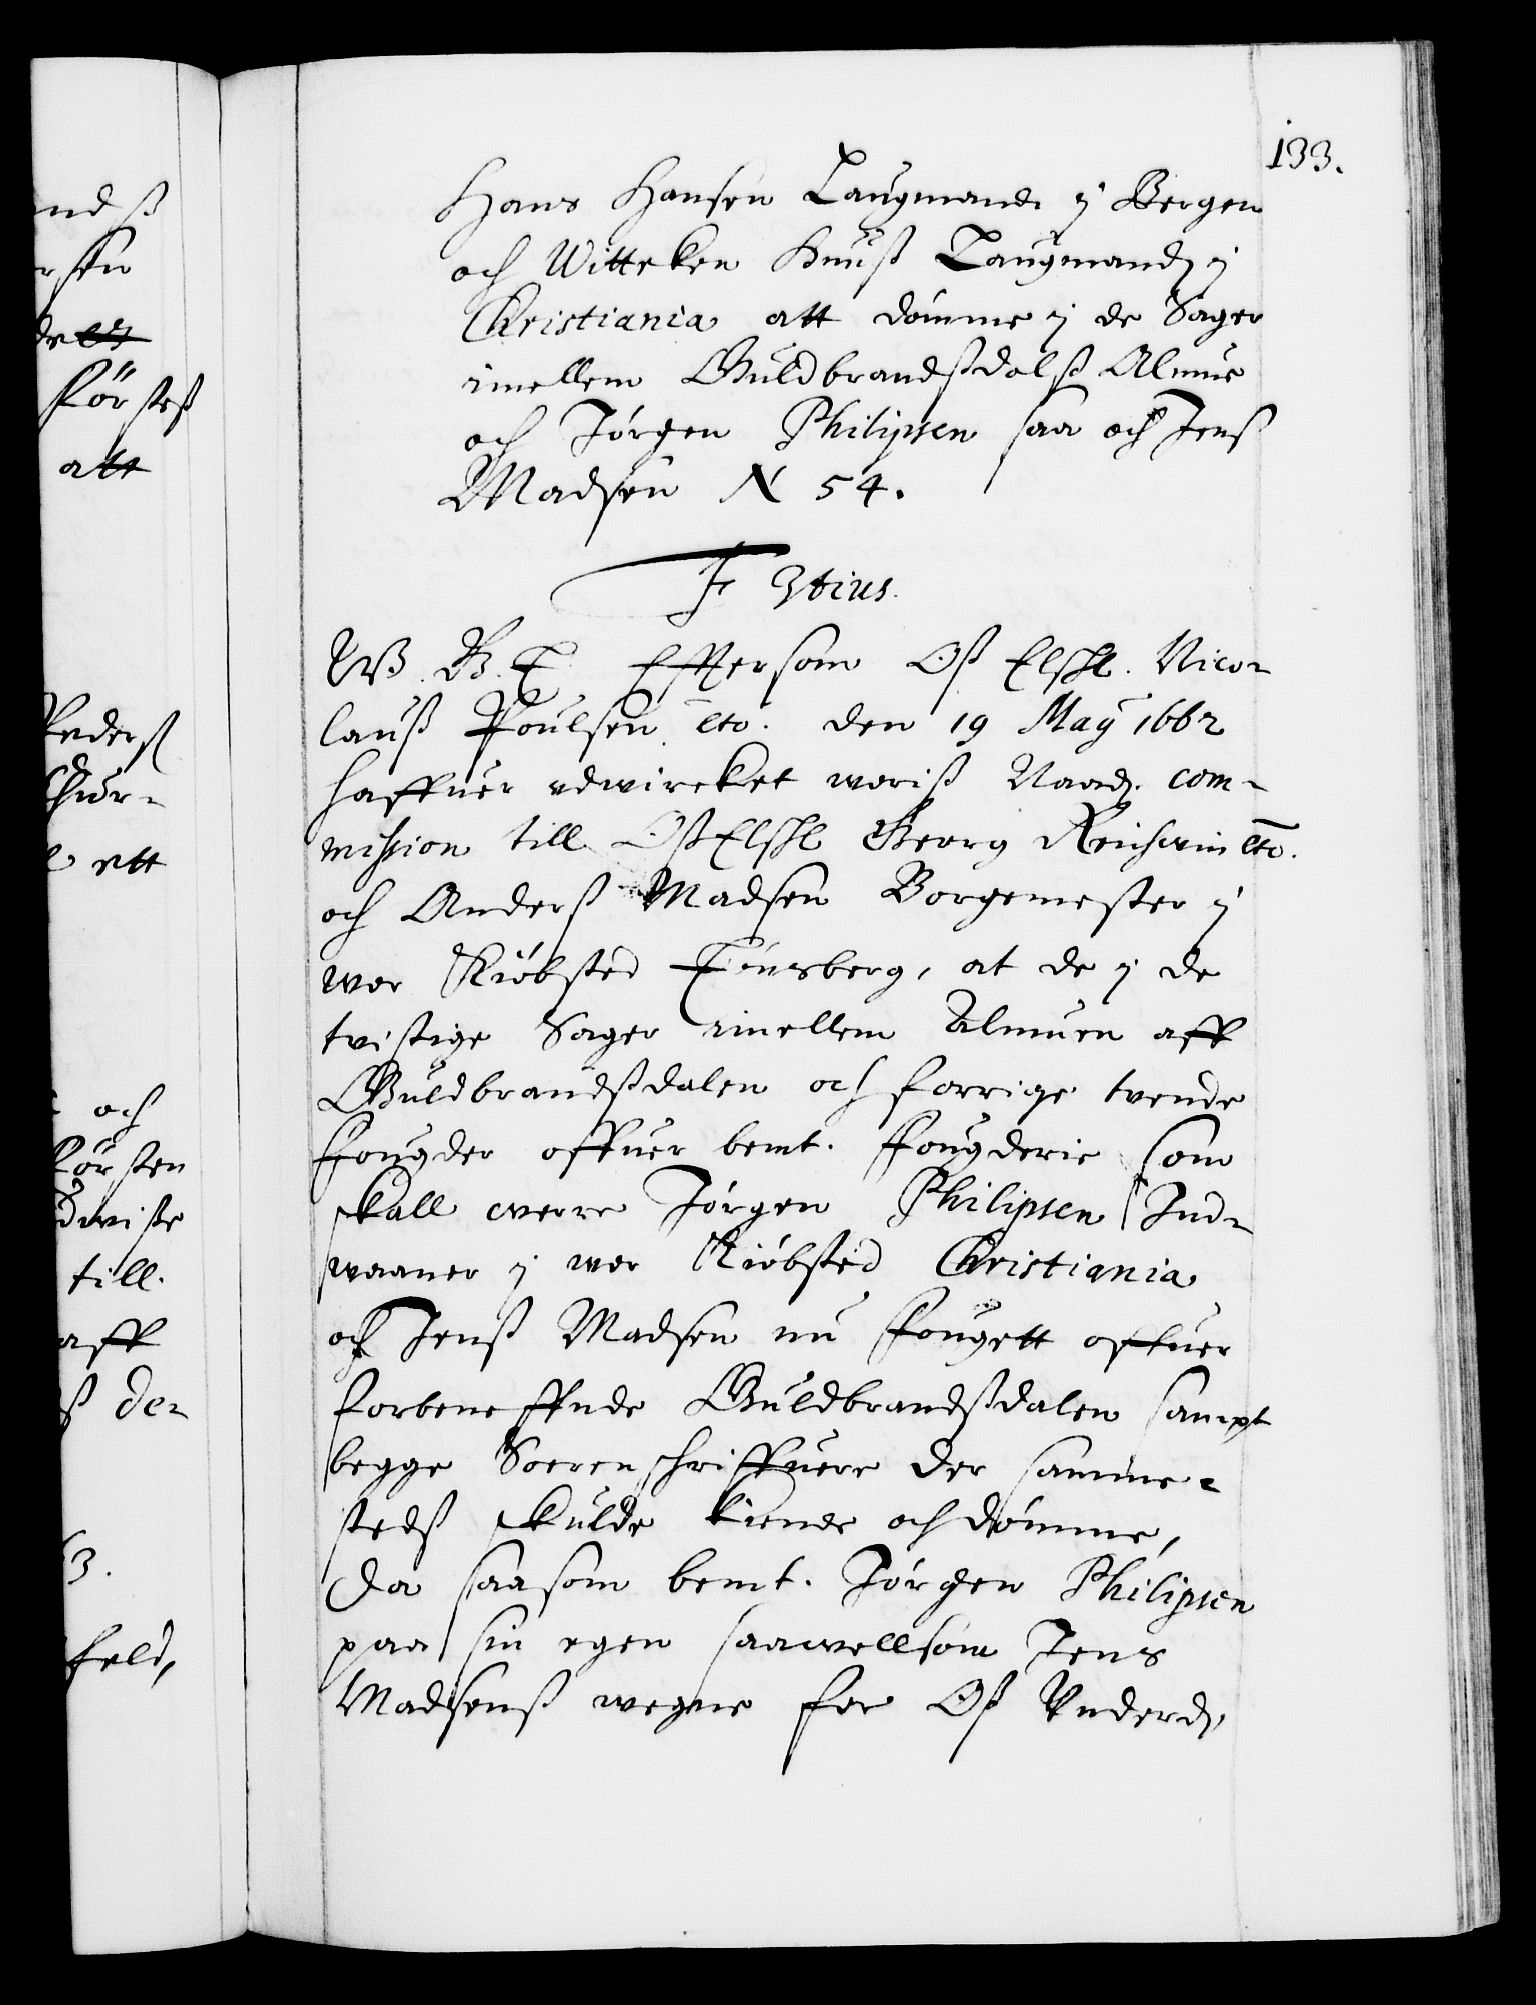 133.
Hans Hansen Laugmand y Bergen
och Witteken Huuß Laugmand y
Christiania att dømme y de Sager
imellem Guldbrandßdalß Almue
och Jørgen Philipsen saa och Jenß
Madsen N 54.
F 3tius.
W. G. T. Effter som Oß Elskl. Nico-
lauß Poulsen etc. den 19 May 1662
haffuer udwircket woriß Naad. com-
mission till Oß Elskl Georg Reichwin etc.
och Anderß Madsen Borgemester y
wor Kiøbsted Tønsberg, at de y de
tvistige Sager imellem Almuen aff
Guldbrandßdalen och forrige tvende
fougder offuer bemt. fougderie som
skall werre Jørgen Philipsen Ind-
waaner y wor Kiøbsted Christiania
och Jenß Madsen nu fougett offuer
forbeneffnde Guldbrandßdalen sampt
begge Soerenschriffuere der samme-
stedß skulde kiende och dømme,
Da saasom bemt. Jørgen Philipsen
paa sin egen saawellsom Jens
Madsenß wegne for Oß Underd.
ndß
att
Pederß
ett
och
till.
aff
ß de-